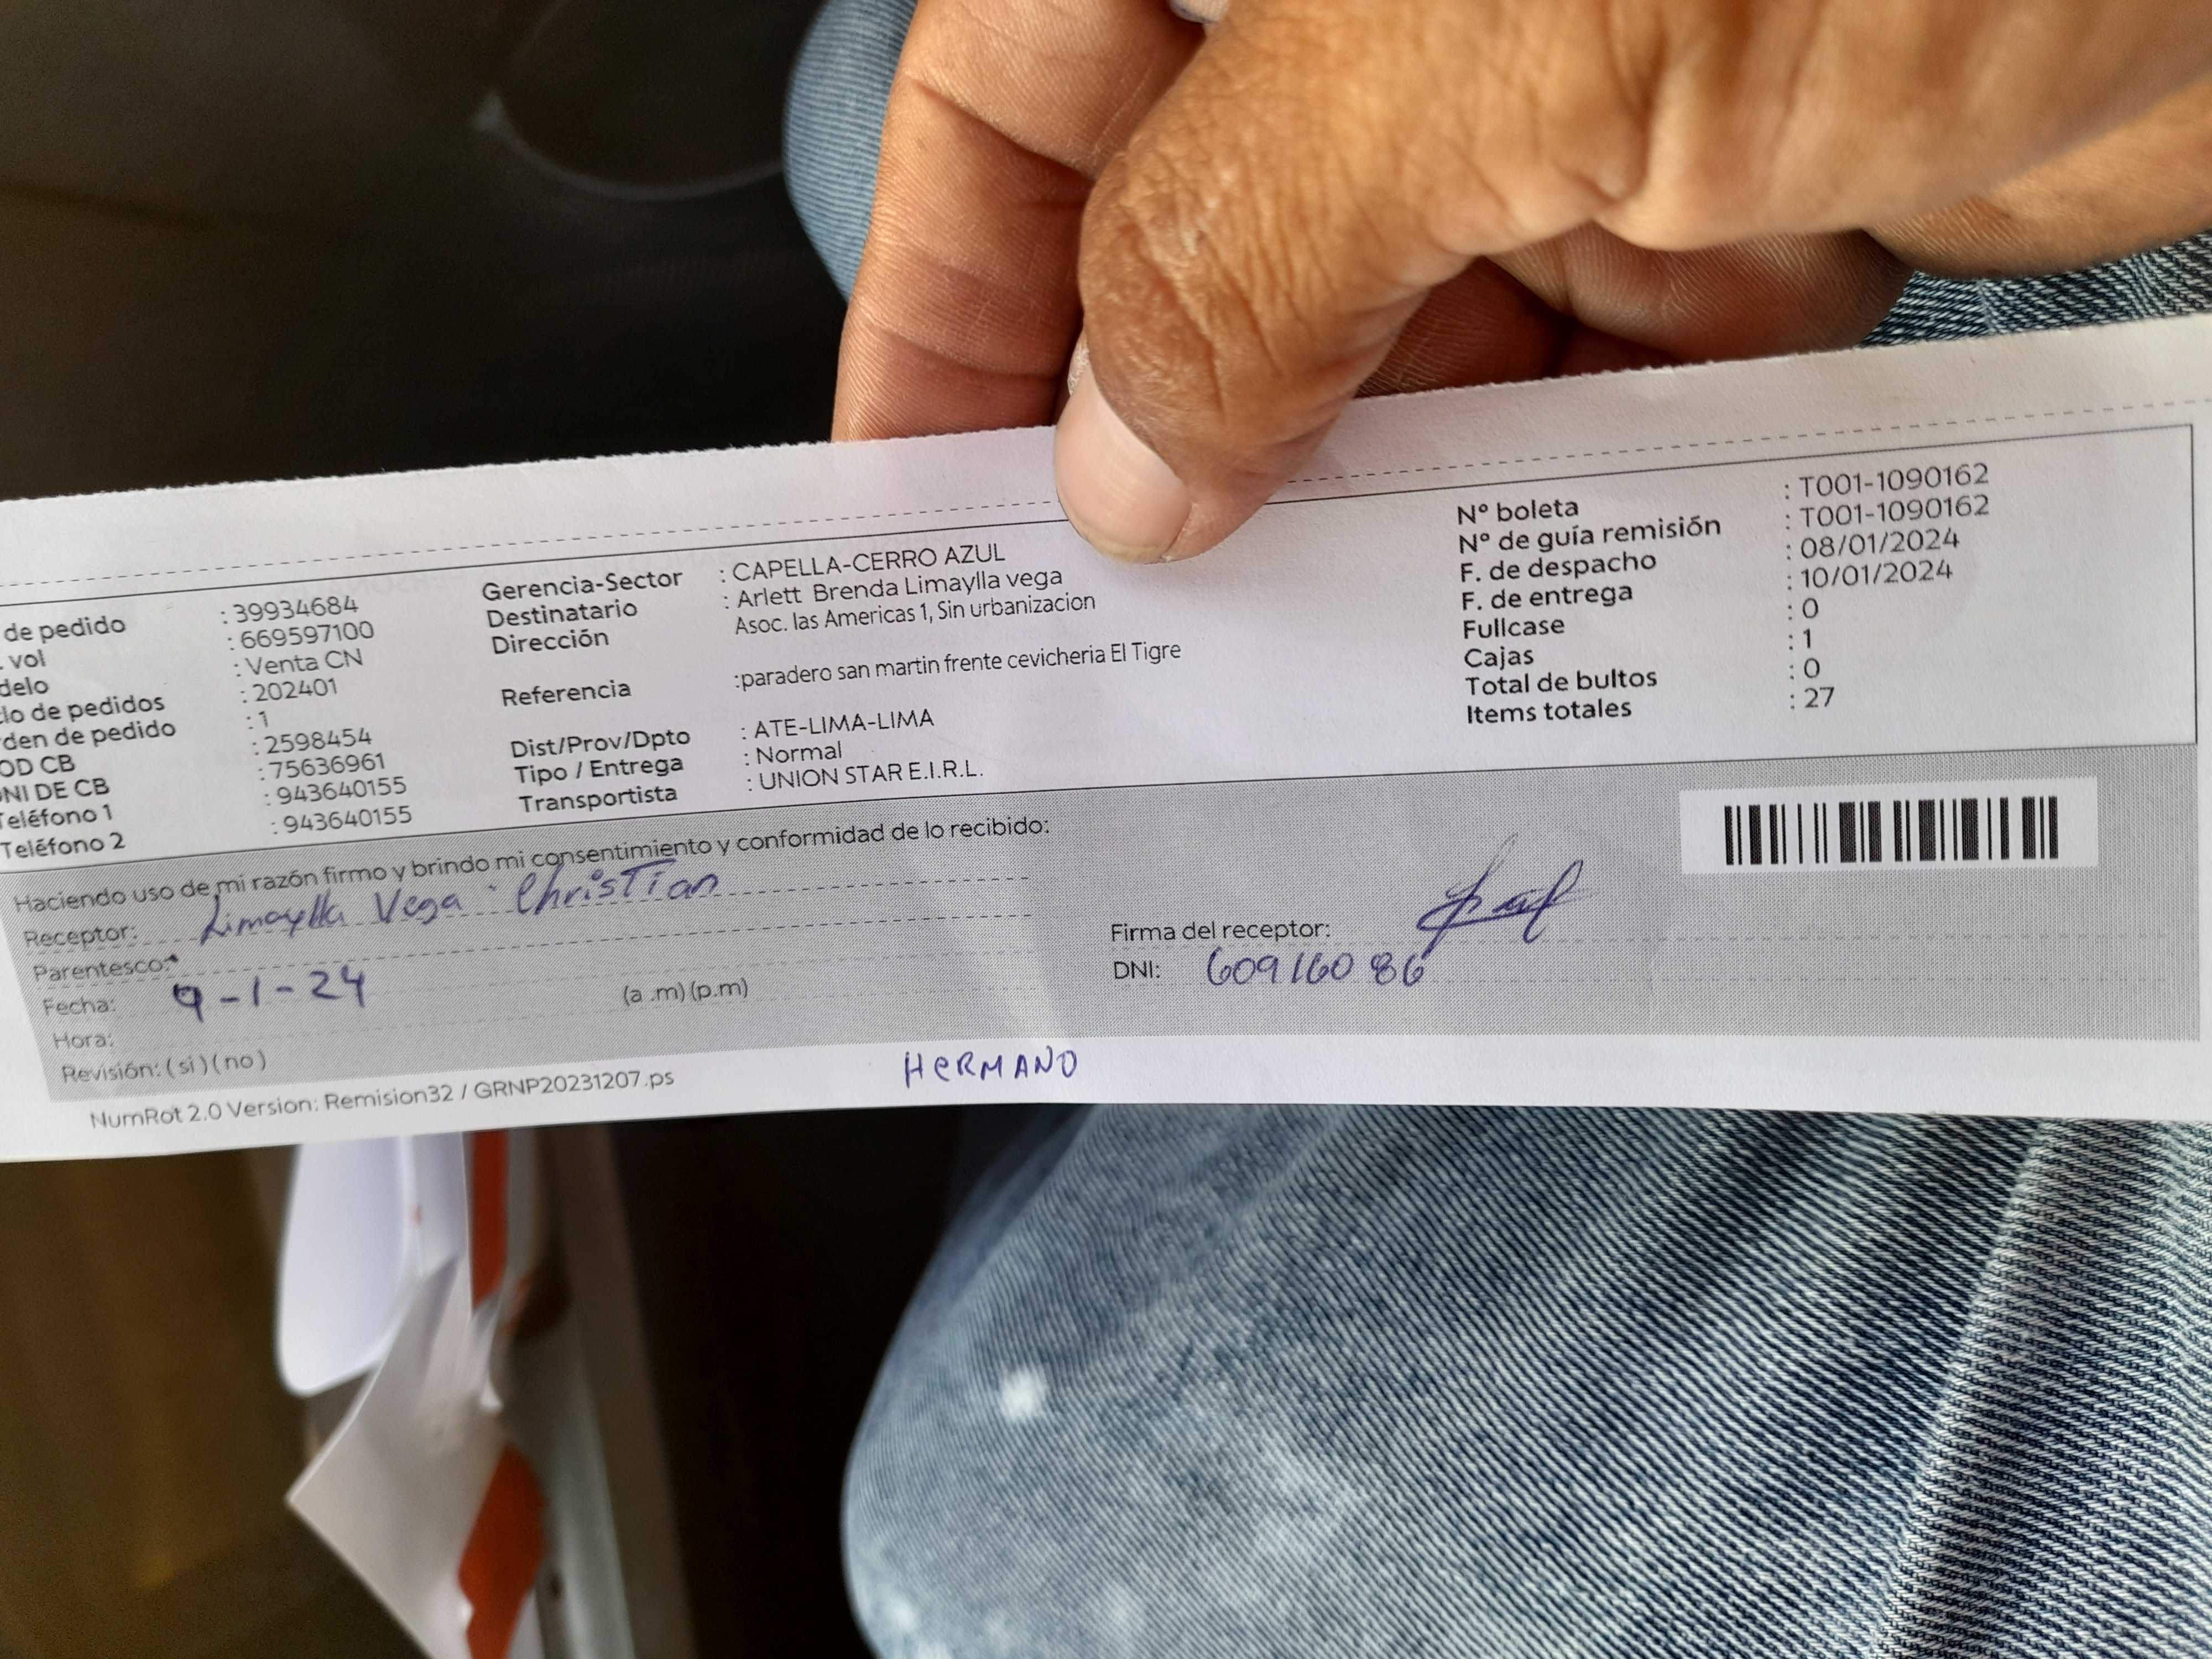 de pedido : 39934684
vol : 669597100
delo : Venta CN
lo de pedidos : 202401
den de pedido : 1
OD CB : 2598454
NI DE CB : 75636961
Teléfono 1 : 943640155
Teléfono 2 : 943640155
Gerencia-Sector : CAPELLA-CERRO AZUL
Destinatario : Arlett Brenda Limaylla vega
Dirección Asoc. las Americas 1, Sin urbanizacion
Referencia :paradero san martin frente cevicheria El Tigre
Dist/Prov/Dpto : ATE-LIMA-LIMA
Tipo / Entrega : Normal
Transportista : UNION STAR E.I.R.L.
Nº boleta : T001-1090162
Nº de guía remisión : T001-1090162
F. de despacho : 08/01/2024
F. de entrega : 10/01/2024
Fullcase : 0
Cajas : 1
Total de bultos : 0
Items totales : 27
Haciendo uso de mi razón firmo y brindo mi consentimiento y conformidad de lo recibido:
Receptor: Limaylla Vega Christian
Parentesco:
Fecha: 9-1-24
Hora: (a .m) (p.m)
Revisión: ( si ) ( no )
Firma del receptor:
DNI: 60916086
HERMANO
NumRot 2.0 Version: Remision32 / GRNP20231207.ps